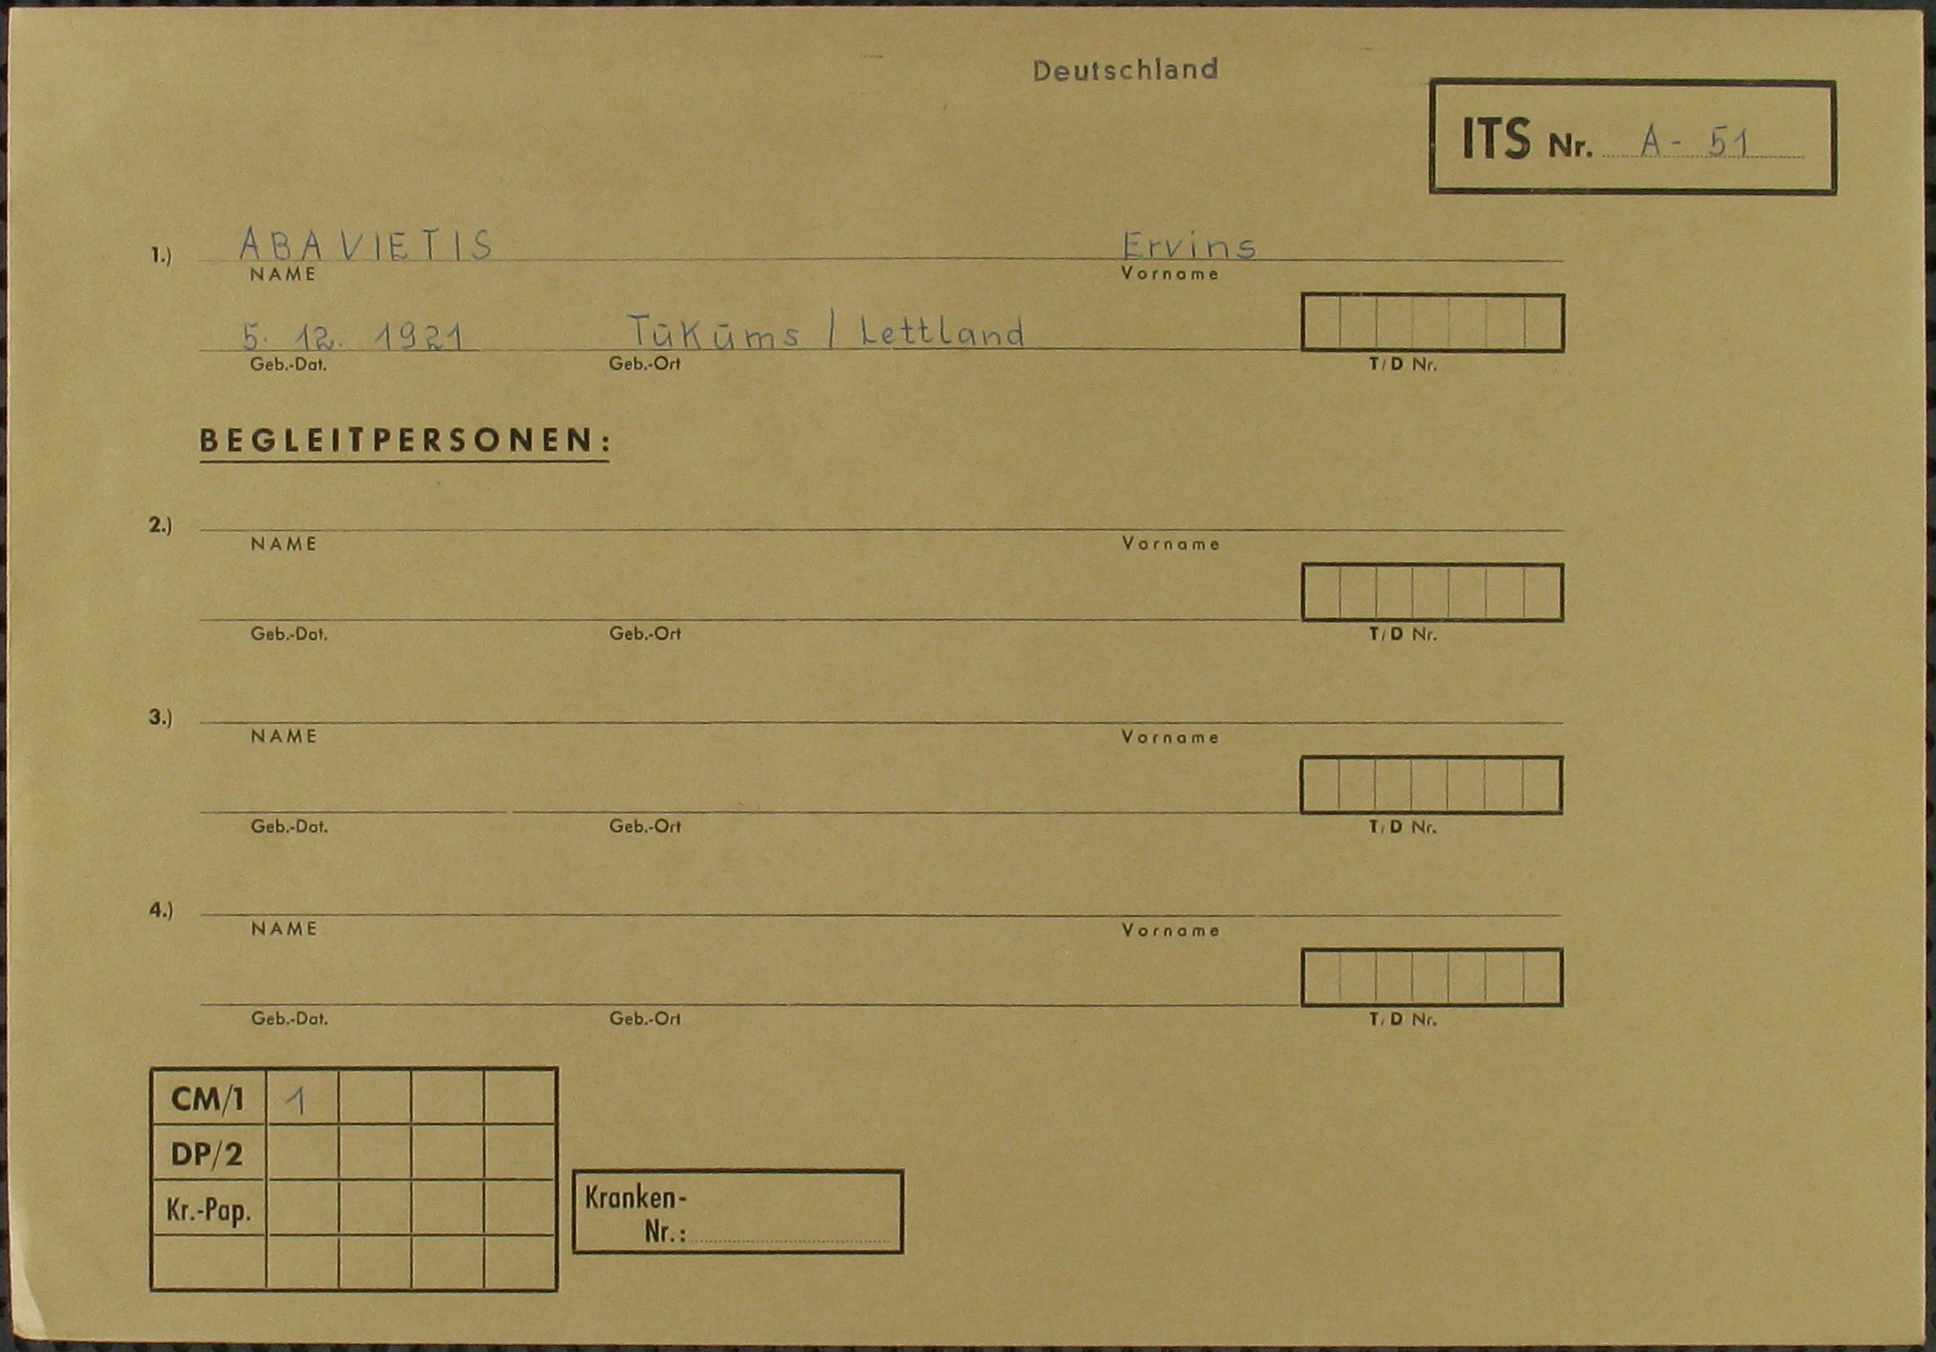 Deutschland
ITS Nr. A - 51
1.) ABAVIETIS Ervins
NAME Vorname
5. 12. 1921 Tūkūms / Lettland
Geb.-Dat. Geb.-Ort T/D Nr.
BEGLEITPERSONEN:
2.)
NAME Vorname
Geb.-Dat. Geb.-Ort T/D Nr.
3.)
NAME Vorname
Geb.-Dat. Geb.-Ort T/D Nr.
4.)
NAME Vorname
Geb.-Dat. Geb.-Ort T/D Nr.
CM/1 1
DP/2
Kr.-Pap.
Kranken-
Nr.: